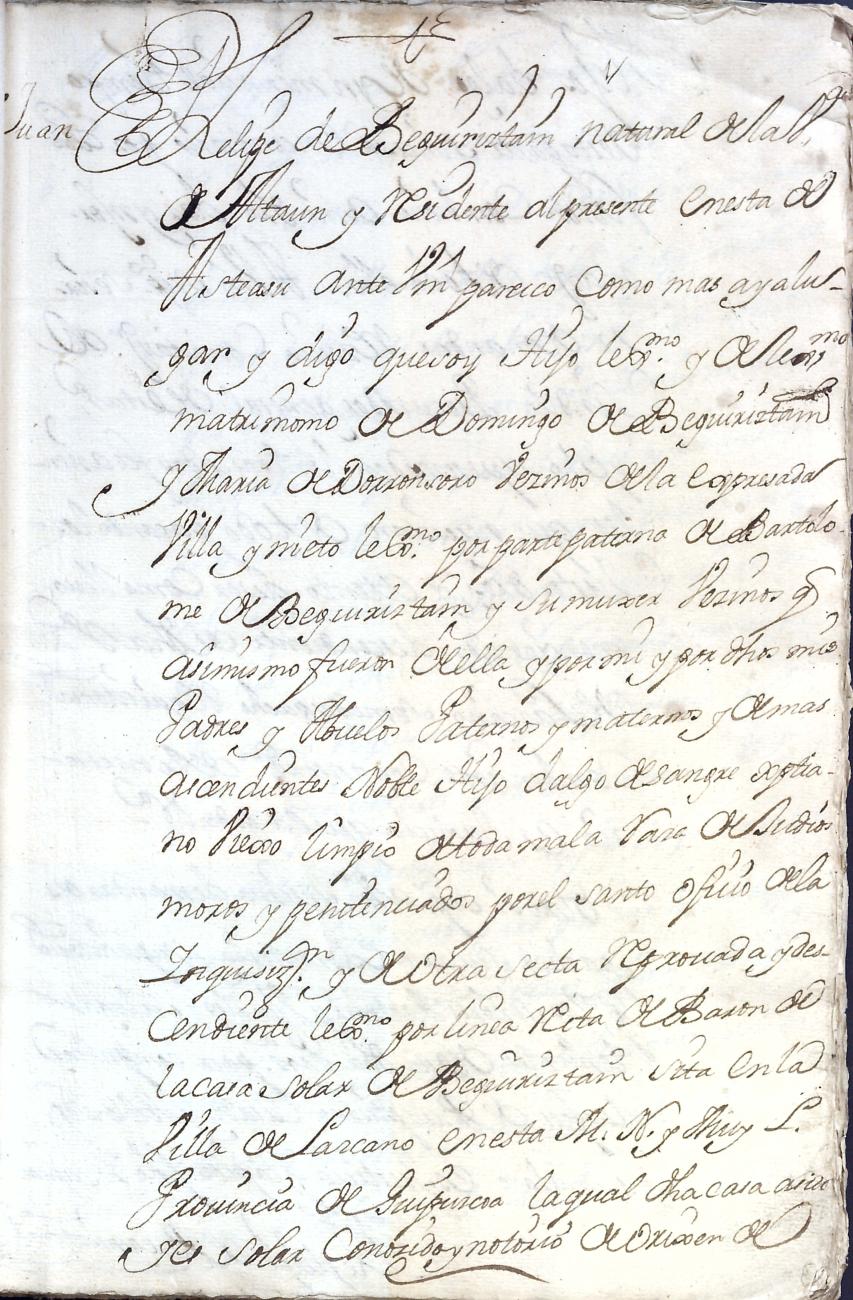 Juan Phelipe de Beguiriztain natural de la V.
de Ataun y Residente al presente en esta de
Asteasu ante Vm parezco como mas aya lu-
gar y digo que soy Hijo lexmo. y de lexmo
matrimonio de Domingo de Beguiriztain
y Maria de Dorronsoro Vezinos de la expresada
Villa y nieto lexmo. por parte paterna de Bartolo-
me de Beguiriztain y su muxer Vezinos q
asimismo fueron de ella y por mi y por dhos mis
Padres y Abuelos Paternos y maternos y demas
ascendientes Noble Hijo dalgo de sangre xptia-
no Viexo limpio de toda mala Raza de Judios
moros y penitenciados por el santo oficio de la
Inquisizn. y de otra secta Reprouada y des-
cendiente lexmo. por linea Recta de Baron de
la casa solar de Beguiriztain sita en la
Villa de Lazcano en esta M. N. y Muy L.
Prouincia de Guipuzcoa la qual dha casa a sido
y es solar Conozido y notorio de orixen de